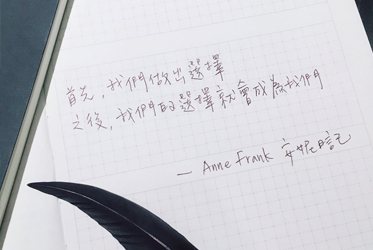 首先，我們做出選擇
之後，我們的選擇就會成為我們
— Anne Frank 安妮日記